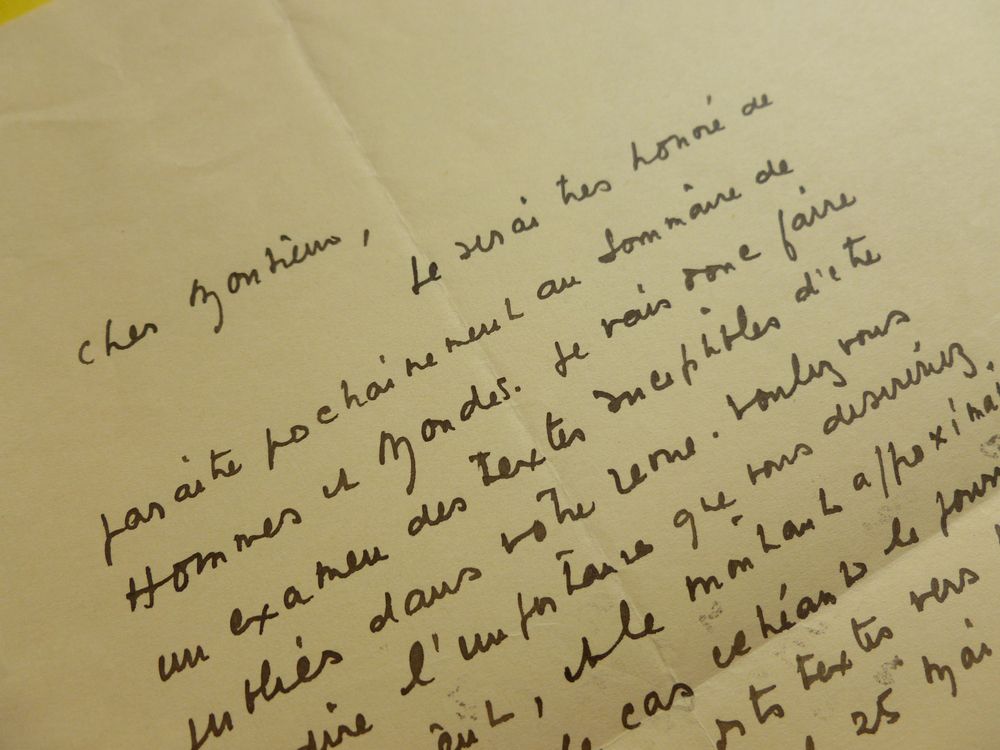 Cher Monsieur,
Je serai très honoré de
paraître prochainement au Sommaire de
Hommes et Mondes. Je vais donc faire
un examen des textes susceptibles d'être
publiés dans votre revue. Voulez vous
dire l'importance que vous desireriez,
et le montant approximat
cas échéant le pourr
textes vers
25 Mai